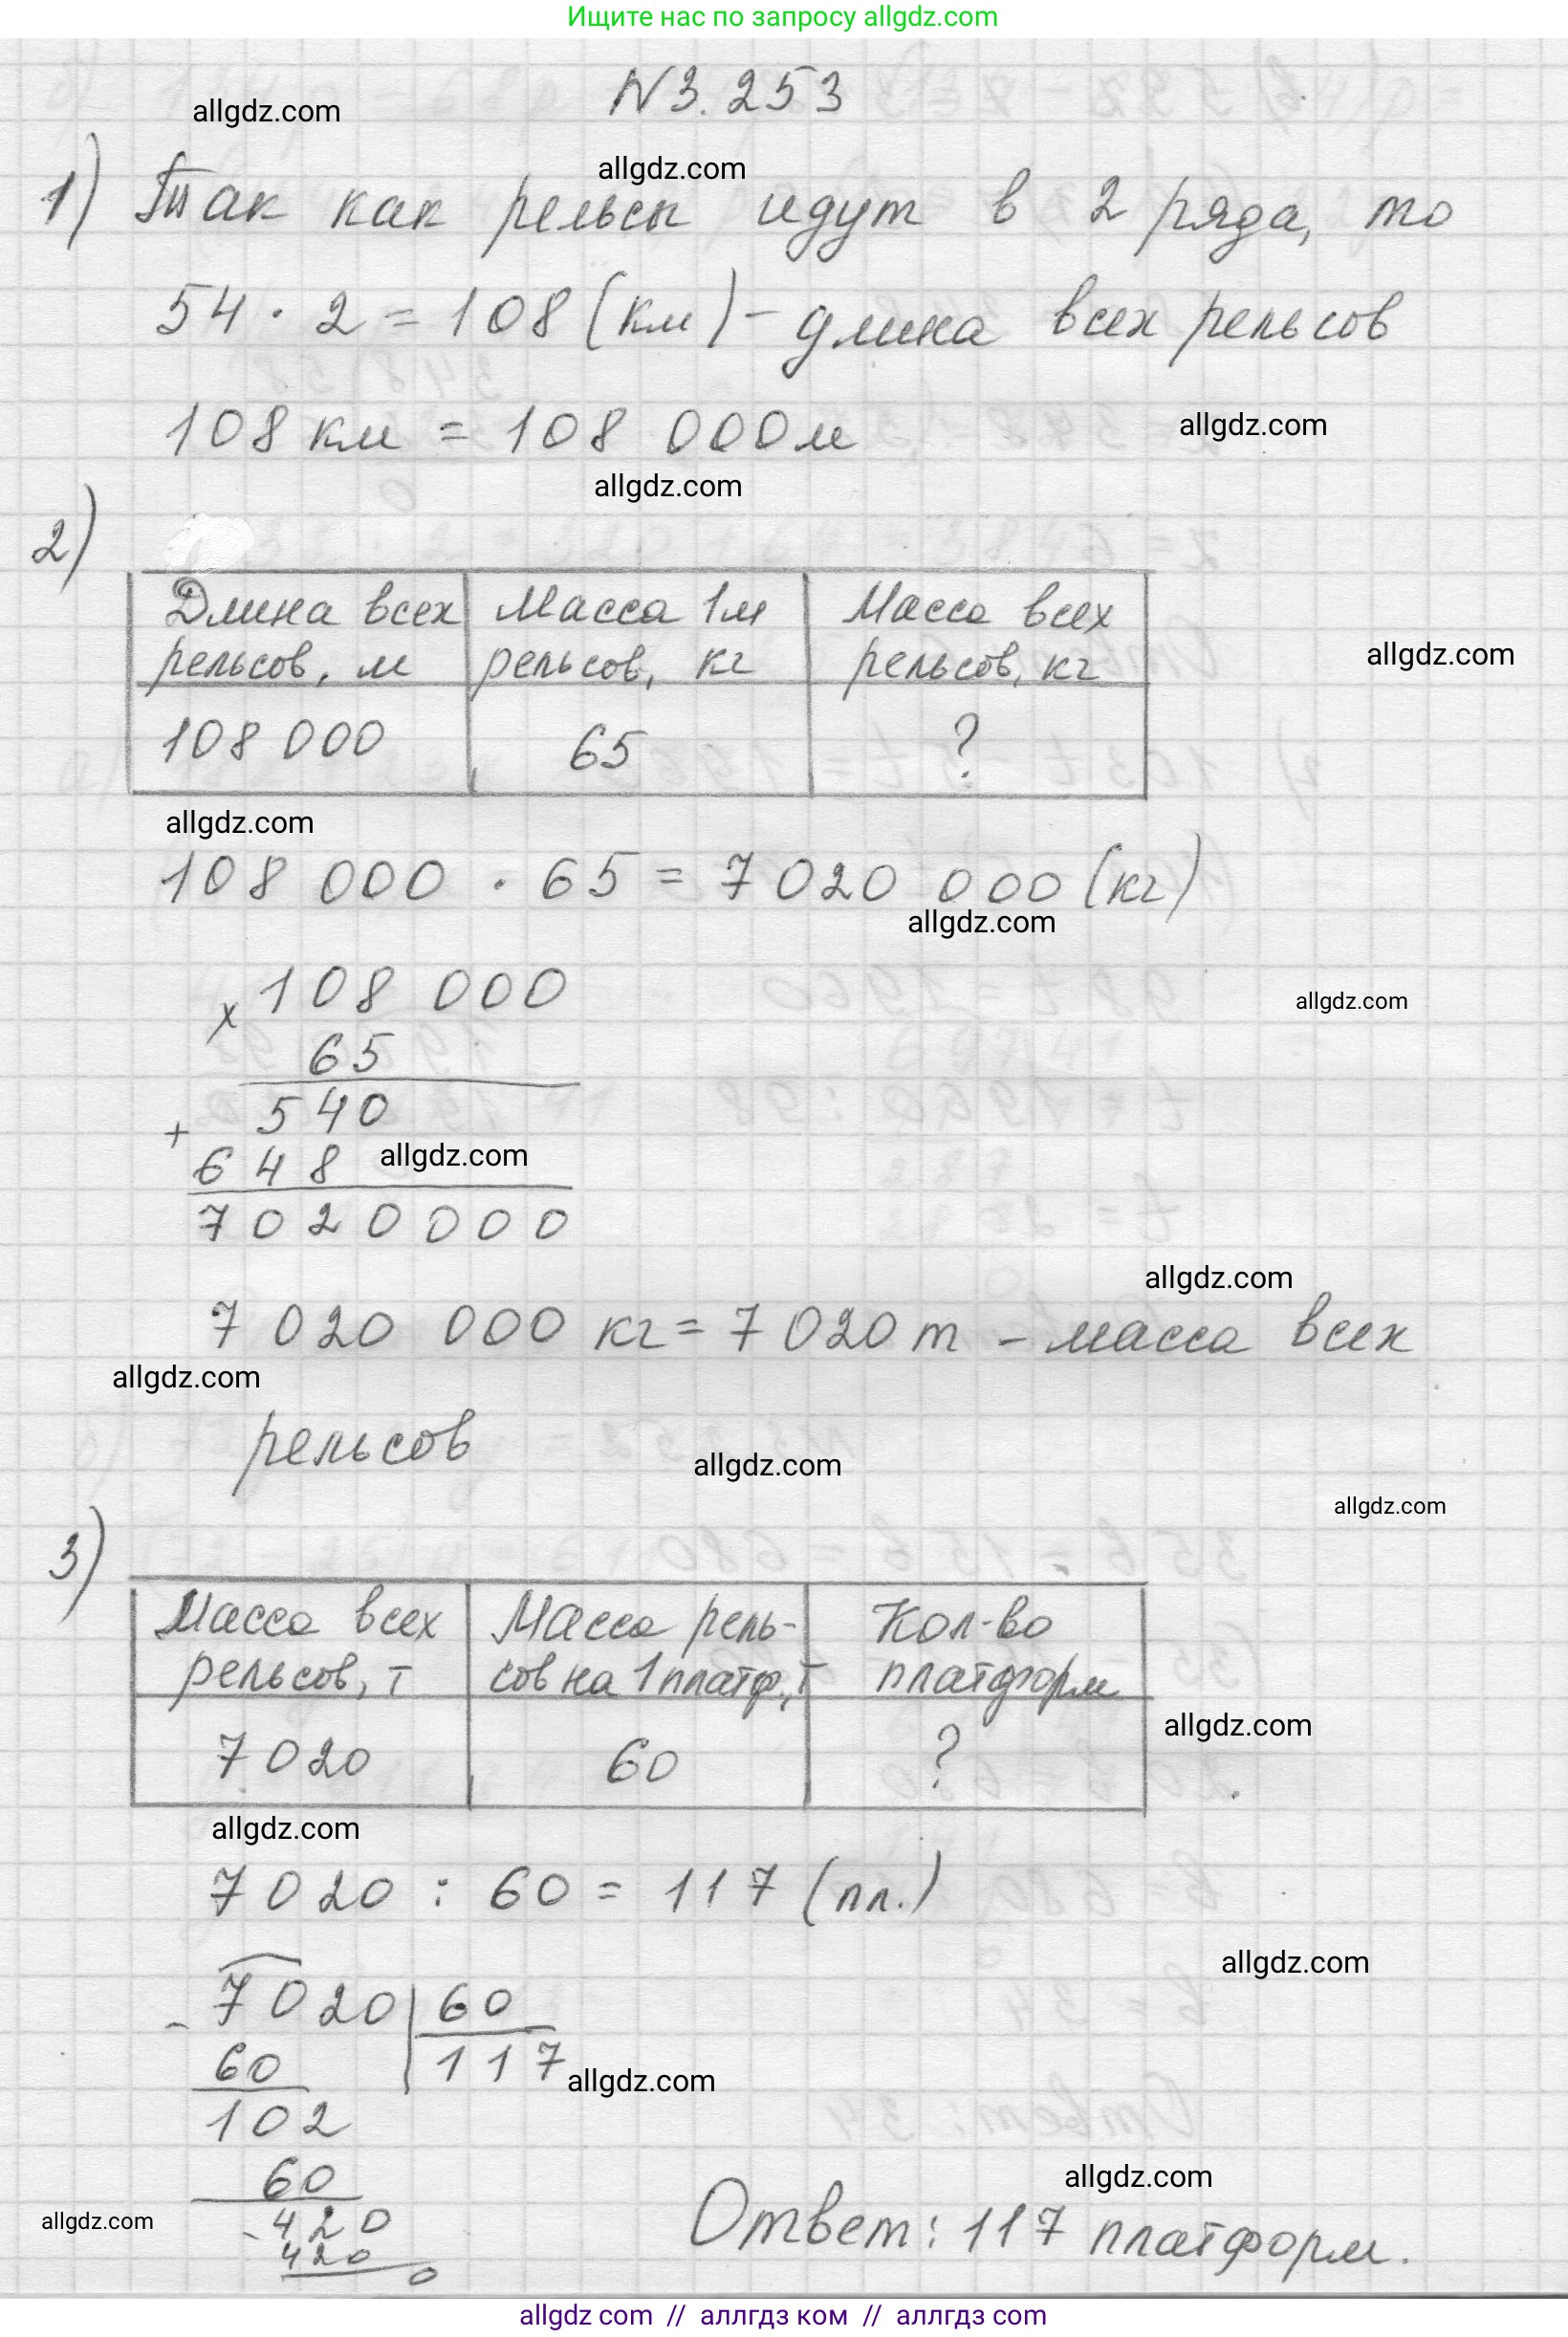 Ищите нас по запросу allgdz.com
№3.253
allgdz.com
allgdz.com
1) Так как рельсы идут в 2 ряда, то
54 · 2 = 108 (км) - длина всех рельсов
108 км = 108 000 м
allgdz.com
allgdz.com
2)
Длина всех рельсов, м | Масса 1м рельсов, кг | Масса всех рельсов, кг
allgdz.com
108 000 | 65 | ?
allgdz.com
108 000 · 65 = 7 020 000 (кг)
allgdz.com
x 108 000
allgdz.com
65
+ 540
648
allgdz.com
7020000
allgdz.com
7 020 000 кг = 7 020 т - масса всех
allgdz.com
рельсов
allgdz.com
allgdz.com
3)
Масса всех рельсов, т | Масса рельсов на 1 платф., т | Кол-во платформ
allgdz.com
7 020 | 60 | ?
allgdz.com
7 020 : 60 = 117 (пл.)
allgdz.com
- 7020 | 60
60 | 117
allgdz.com
102
60
allgdz.com
allgdz.com
- 420
420
0
Ответ: 117 платформ.
allgdz com // аллгдз ком // аллгдз com